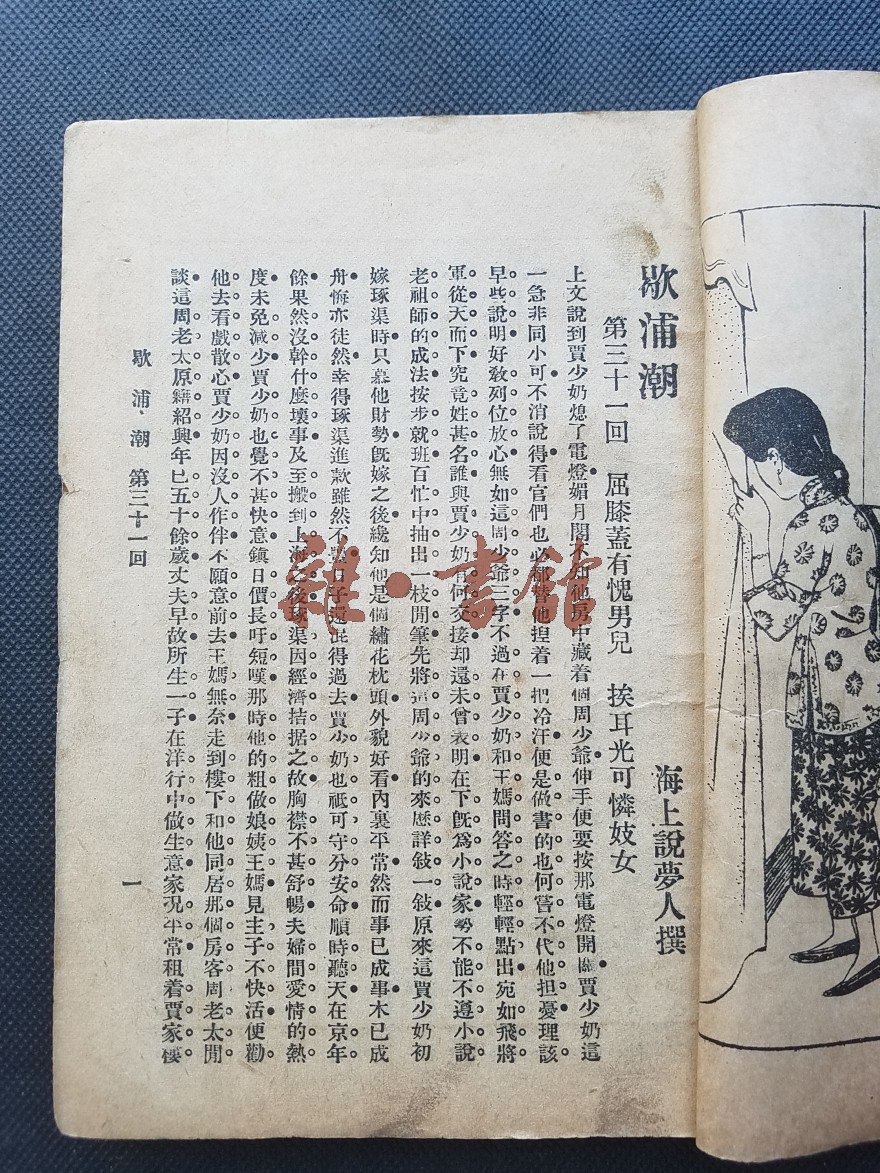 歇浦潮
海上說夢人撰
第三十一回　屈膝蓋有愧男兒　挨耳光可憐妓女
上文說到賈少奶熄了電燈媚月閣不知他房中藏着個周少爺伸手便要按那電燈開關賈少奶這
一急非同小可不消說得看官們也必都替他揑着一把冷汗便是做書的也何嘗不代他担憂理該
早些說明好敎列位放心無如這周少爺三字不過在賈少奶和王媽問答之時輕輕點出宛如飛將
軍從天而下究竟姓甚名誰與賈少奶有何交接却還未曾表明在下旣爲小說家勢不能不遵小說
老祖師的成法按步就班百忙中抽出一枝閒筆先將這周少爺的來歷詳敍一敍原來這賈少奶初
嫁琢渠時只慕他財勢旣嫁之後纔知他是個繡花枕頭外貌好看內裏平常然而事已成事木已成
舟悔亦徒然幸得琢渠進款雖然不點日子還混得過去賈少奶也祗可守分安命順時聽天在京年
餘果然沒幹什麼壞事及至搬到上海之後琢渠因經濟拮据之故胸襟不甚舒暢夫婦間愛情的熱
度未免減少賈少奶也覺不甚快意鎮日價長吁短嘆那時他的粗做娘姨王媽見主子不快活便勸
他去看戲散心賈少奶因沒人作伴不願意前去王媽無奈走到樓下和他同居那個房客周老太閒
談這周老太原籍紹興年已五十餘歲丈夫早故所生一子在洋行中做生意家况平常租着賈家樓
歇浦潮　第三十一回
一
雜·書館